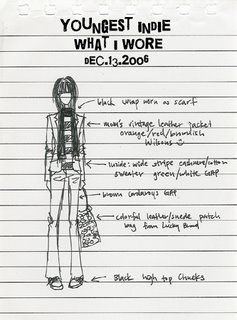 YOUNGEST INDIE
WHAT I WORE
DEC.13.2006
black wrap worn as scarf
mom's vintage leather jacket
orange/red/brownish
Wilsons
inside: wide stripe cashmere/cotton
sweater green/white GAP
brown corduroys GAP
colorful leather/suede patch
bag from Lucky Brand
Black high top chucks